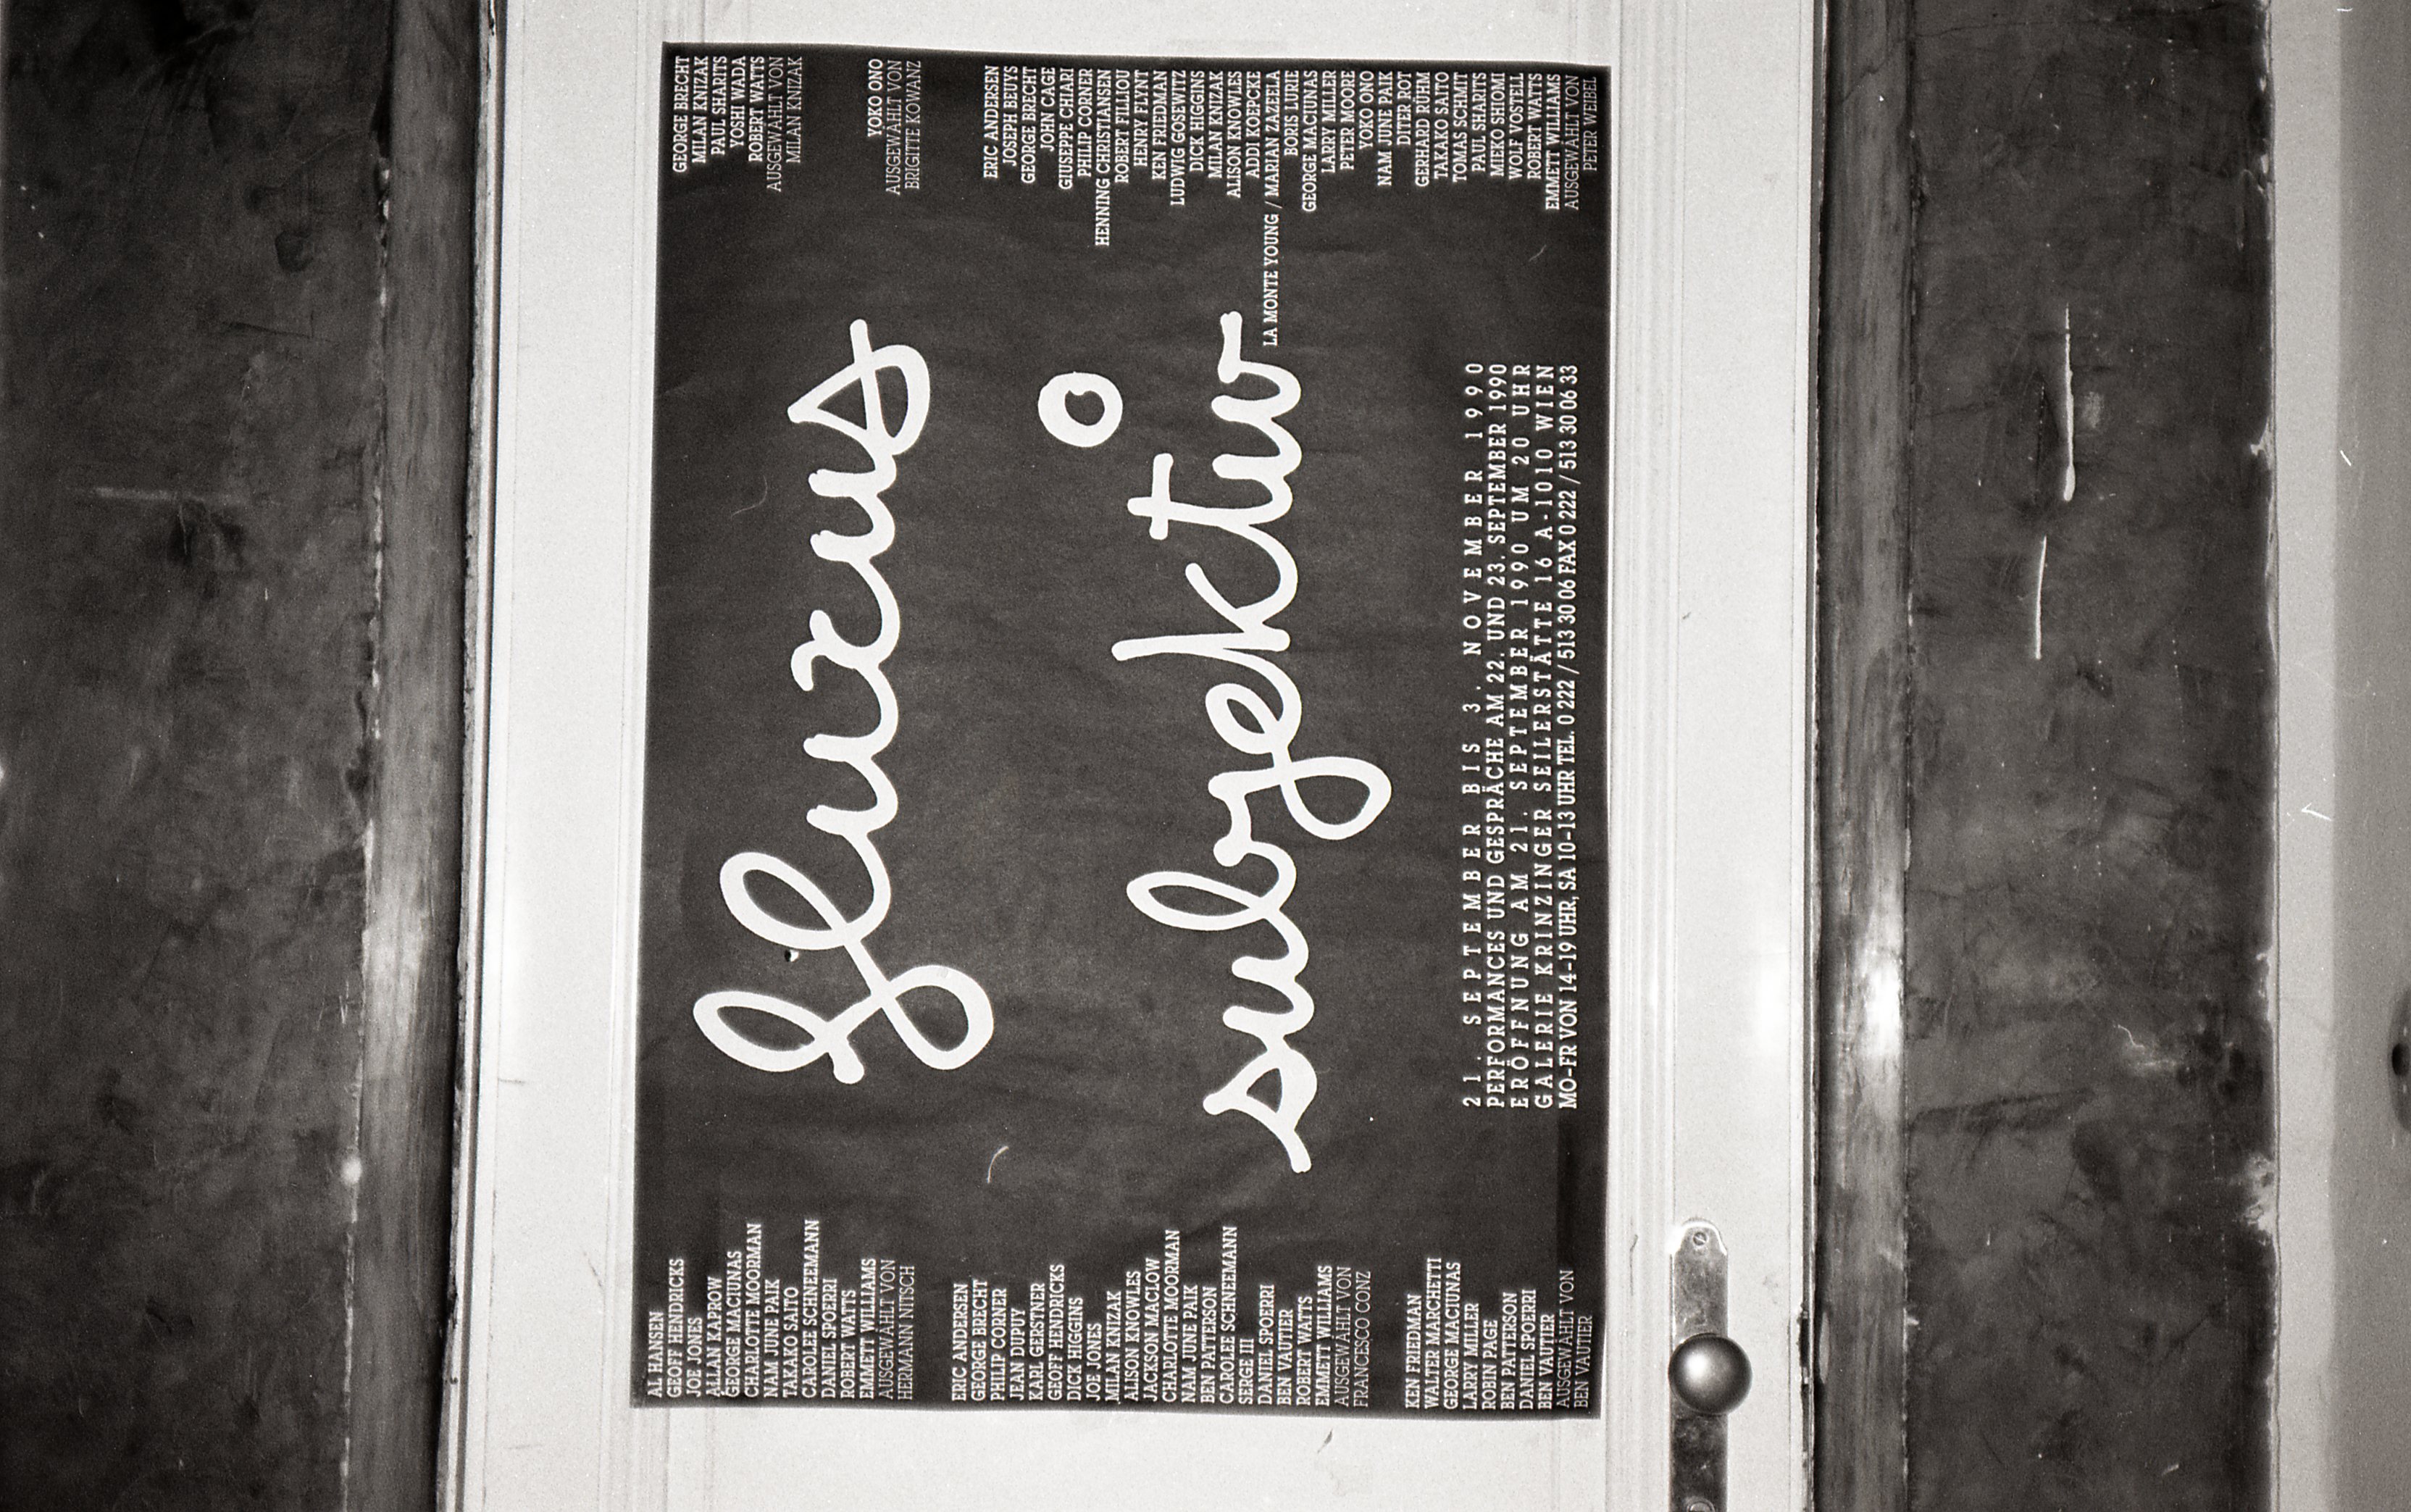 AL HANSEN
GEOFF HENDRICKS
JOE JONES
ALLAN KAPROW
GEORGE MACIUNAS
CHARLOTTE MOORMAN
NAM JUNE PAIK
TAKAKO SAITO
CAROLEE SCHNEEMANN
DANIEL SPOERRI
ROBERT WATTS
EMMETT WILLIAMS
AUSGEWÄHLT VON
HERMANN NITSCH
ERIC ANDERSEN
GEORGE BRECHT
PHILIP CORNER
JEAN DUPUY
KARL GERSTNER
GEOFF HENDRICKS
DICK HIGGINS
JOE JONES
MILAN KNIZAK
ALISON KNOWLES
JACKSON MACLOW
CHARLOTTE MOORMAN
NAM JUNE PAIK
BEN PATTERSON
CAROLEE SCHNEEMANN
SERGE III
DANIEL SPOERRI
BEN VAUTIER
ROBERT WATTS
EMMETT WILLIAMS
AUSGEWÄHLT VON
FRANCESCO CONZ
KEN FRIEDMAN
WALTER MARCHETTI
GEORGE MACIUNAS
LARRY MILLER
ROBIN PAGE
BEN PATTERSON
DANIEL SPOERRI
BEN VAUTIER
AUSGEWÄHLT VON
BEN VAUTIER
fluxus
subjektiv
21. SEPTEMBER BIS 3. NOVEMBER 1990
PERFORMANCES UND GESPRÄCHE AM 22. UND 23. SEPTEMBER 1990
ERÖFFNUNG AM 21. SEPTEMBER 1990 UM 20 UHR
GALERIE KRINZINGER SEILERSTÄTTE 16 A-1010 WIEN
MO-FR VON 14-19 UHR, SA 10-13 UHR TEL. 0 222 / 513 30 06 FAX 0 222 / 513 30 06 33
GEORGE BRECHT
MILAN KNIZAK
PAUL SHARITS
YOSHI WADA
ROBERT WATTS
AUSGEWÄHLT VON
MILAN KNIZAK
YOKO ONO
AUSGEWÄHLT VON
BRIGITTE KOWANZ
ERIC ANDERSEN
JOSEPH BEUYS
GEORGE BRECHT
JOHN CAGE
GIUSEPPE CHIARI
PHILIP CORNER
HENNING CHRISTIANSEN
ROBERT FILLIOU
HENRY FLYNT
KEN FRIEDMAN
LUDWIG GOSEWITZ
DICK HIGGINS
MILAN KNIZAK
ALISON KNOWLES
ADDI KOEPCKE
LA MONTE YOUNG / MARIAN ZAZEELA
BORIS LURIE
GEORGE MACIUNAS
LARRY MILLER
PETER MOORE
YOKO ONO
NAM JUNE PAIK
DITER ROT
GERHARD RUHM
TAKAKO SAITO
TOMAS SCHMIT
PAUL SHARITS
MIEKO SHIOMI
WOLF VOSTELL
ROBERT WATTS
EMMETT WILLIAMS
AUSGEWÄHLT VON
PETER WEIBEL